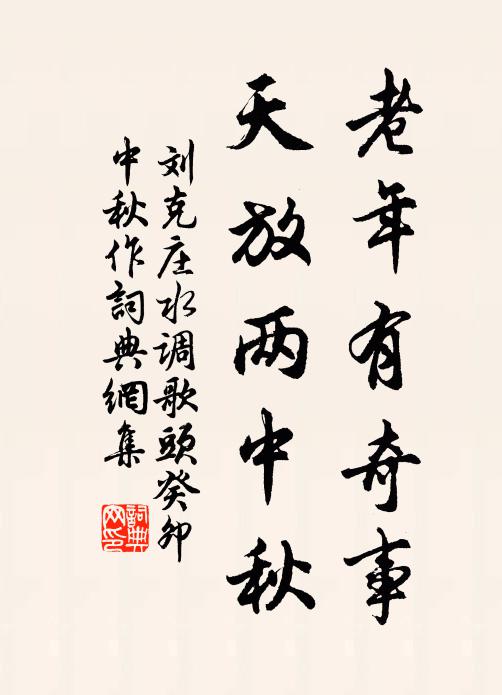 老年有奇事
天放两中秋
刘克庄水调歌頭癸卯
中秋作詞典網集
詞典
网印